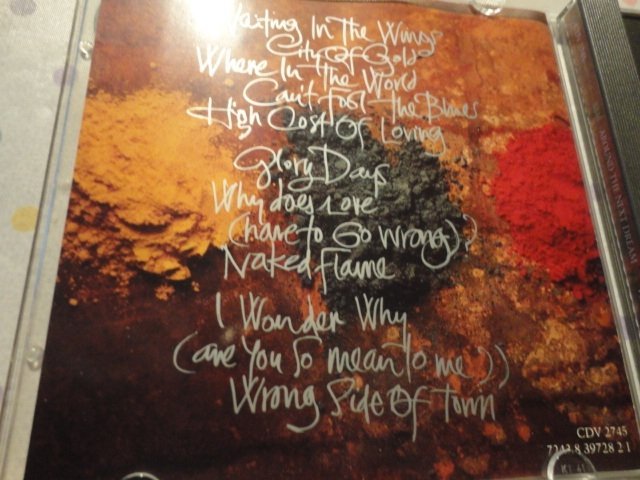 Waiting In The Wings
City Of Gold
Where In The World
Can't Fool The Blues
High Cost Of Loving
Glory Days
Why does Love
(have to Go wrong)?
Naked Flame
I Wonder Why
(are You So mean To me?)
Wrong Side Of Town
CDV 2745
7243 8 39728 2 1
AROUND THE NEXT DREAM